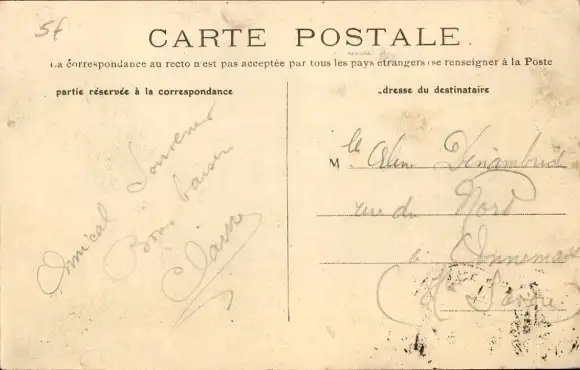 5f
CARTE POSTALE
La correspondance au recto n'est pas acceptée par tous les pays étrangers (se renseigner à la Poste
partie réservée à la correspondance
dresse du destinataire
Amical Souvenir
Bons baisers
Claire
Mlle
rue du Nord
à Annemasse
(Hte Savoie)